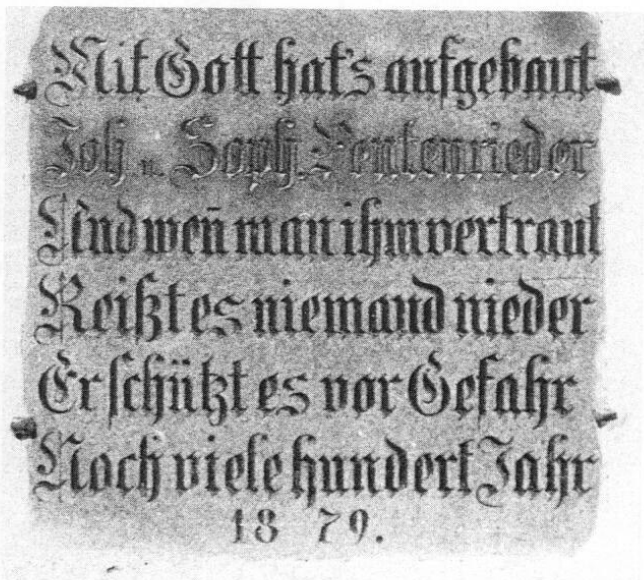 Mit Gott hat's aufgebaut
Joh. u. Soph. Pentenrieder
Und weñ man ihm vertraut
Reißt es niemand nieder
Er schützt es vor Gefahr
Noch viele hundert Jahr
1879.